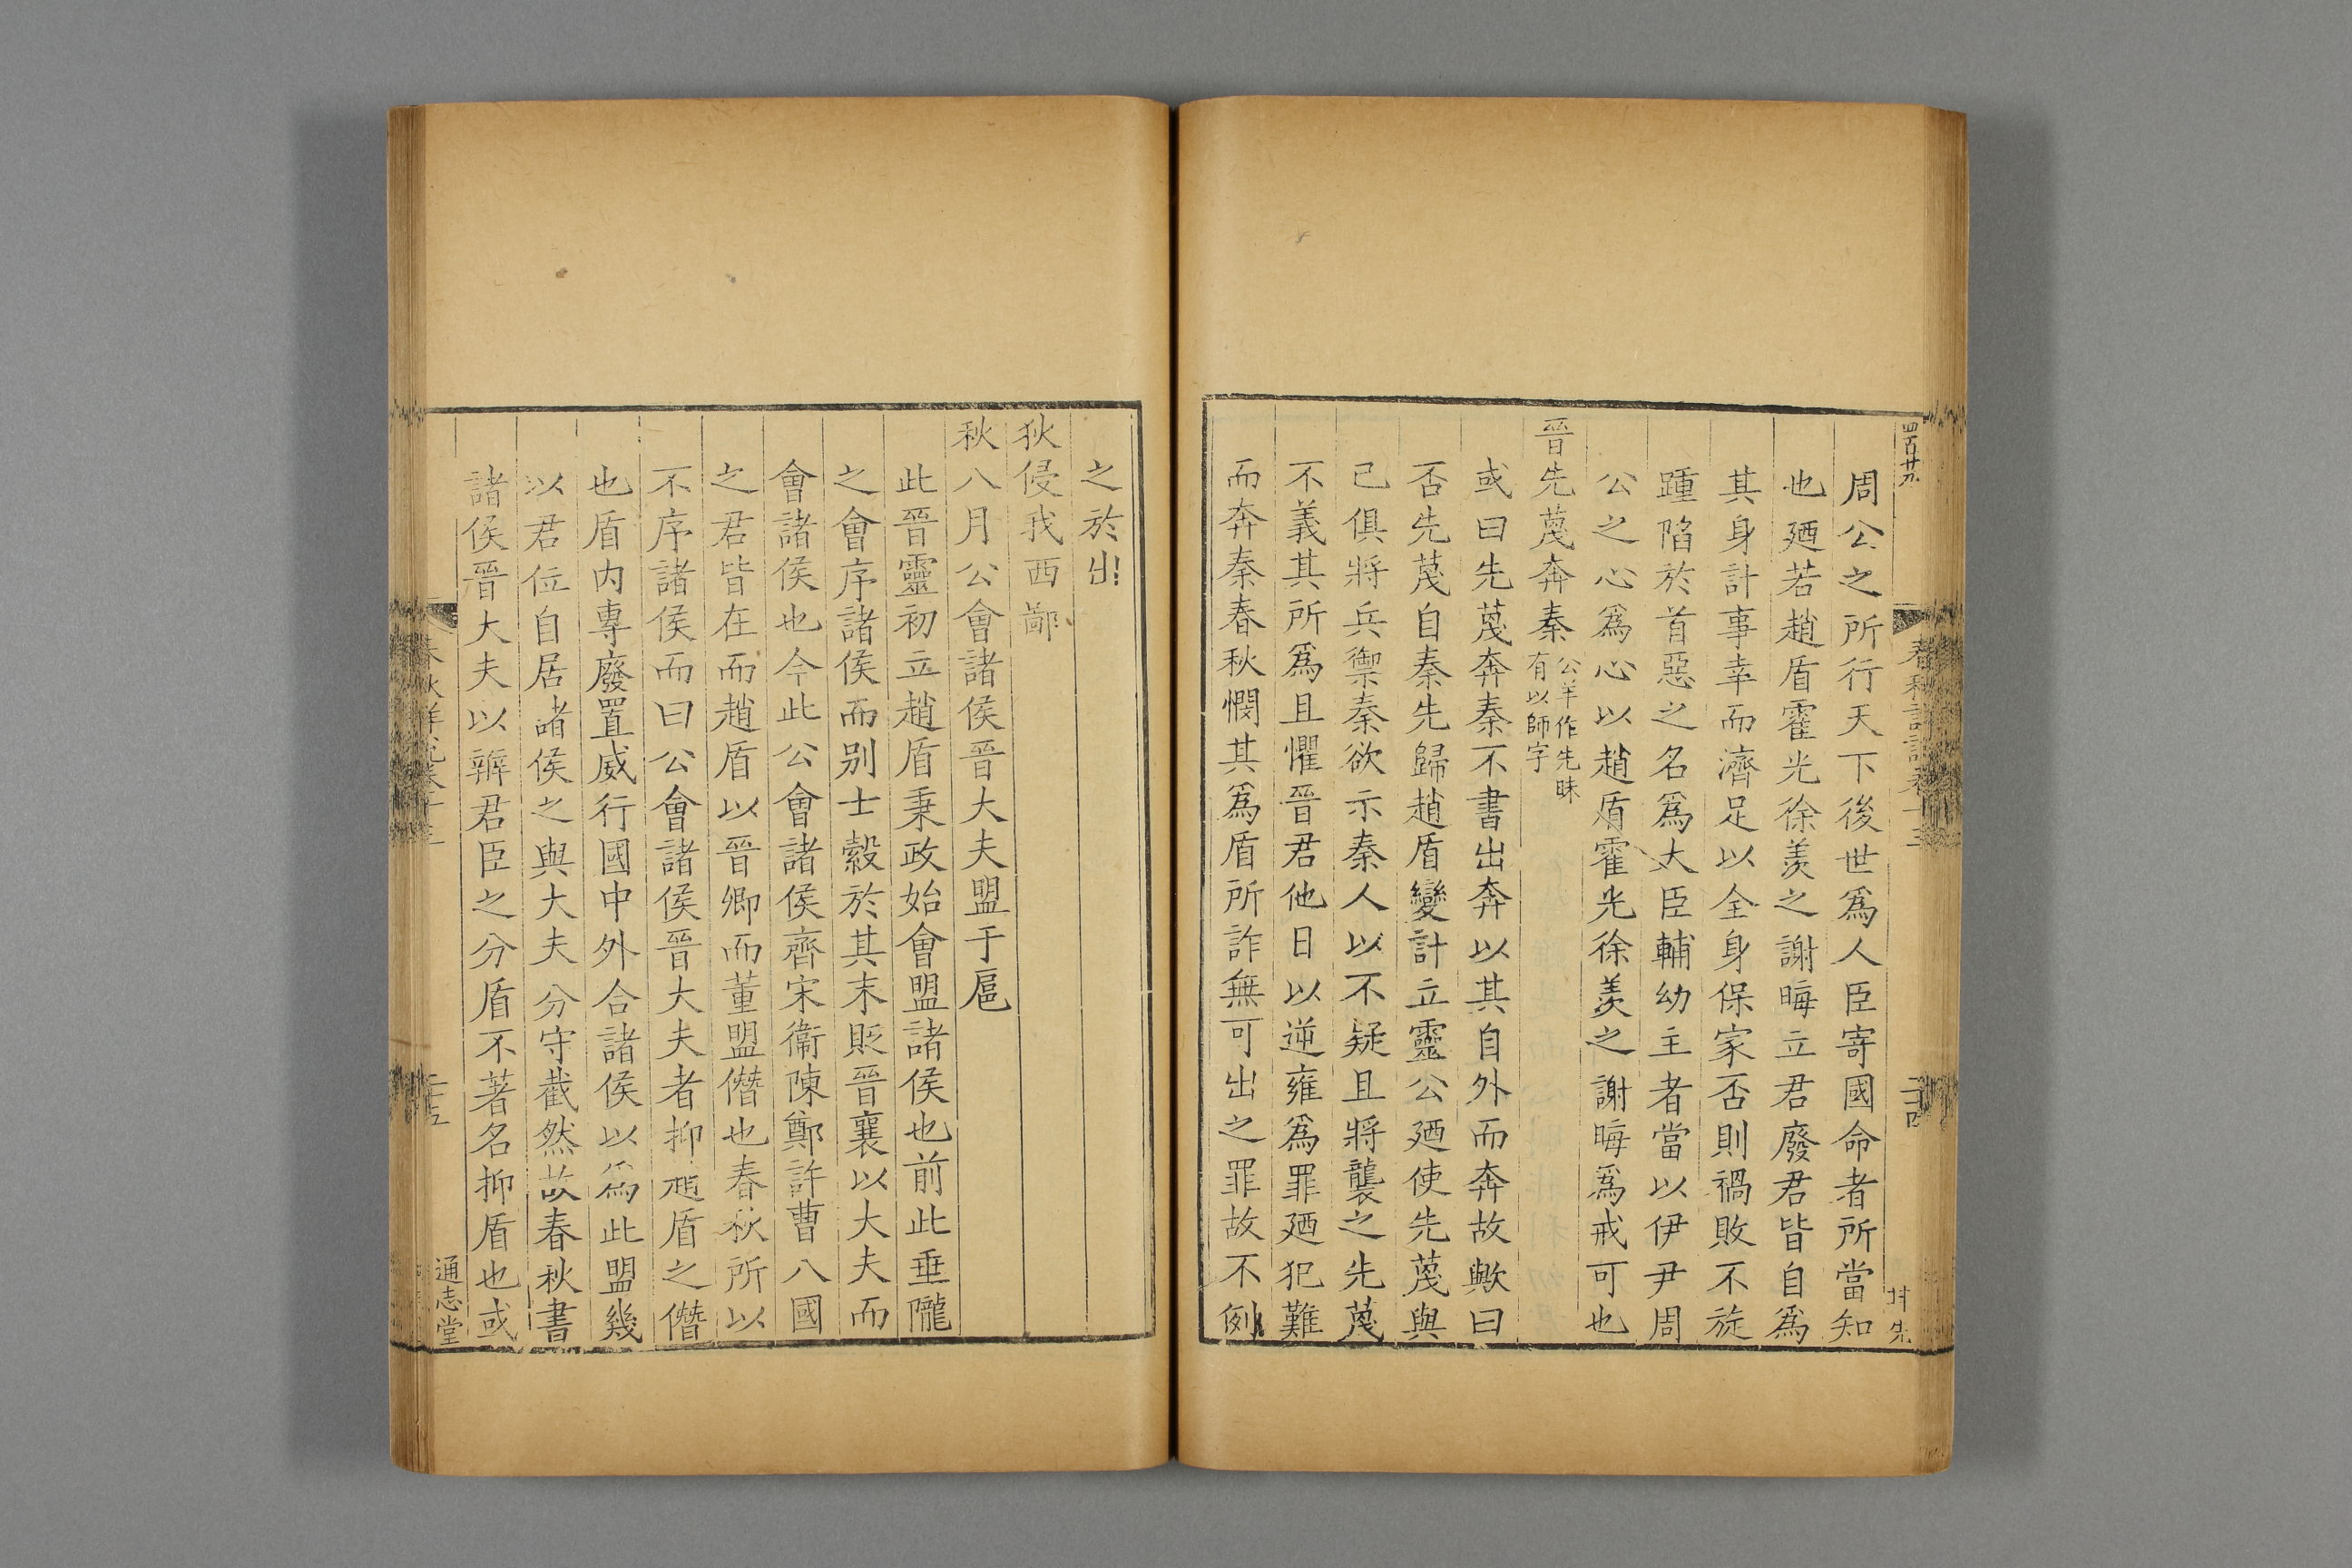 四百廿九
春秋詳說卷十三
二十四
甘先
周公之所行天下後世爲人臣寄國命者所當知
也廼若趙盾霍光徐羨之謝晦立君廢君皆自爲
其身計事幸而濟足以全身保家否則禍敗不旋
踵陷於首惡之名爲大臣輔幼主者當以伊尹周
公之心爲心以趙盾霍光徐羨之謝晦爲戒可也
晉先蔑奔秦公羊作先眛有以師字
或曰先蔑奔秦不書出奔以其自外而奔故歟曰
否先蔑自秦先歸趙盾變計立靈公廼使先蔑與
已俱將兵禦秦欲示秦人以不疑且將襲之先蔑
不義其所爲且懼晉君他日以逆雍爲罪廼犯難
而奔秦春秋憫其爲盾所詐無可出之罪故不例
之於出
狄侵我西鄙
秋八月公會諸侯晉大夫盟于扈
此晉靈初立趙盾秉政始會盟諸侯也前此垂隴
之會序諸侯而別士縠於其末貶晉襄以大夫而
會諸侯也今此公會諸侯齊宋衞陳鄭許曹八國
之君皆在而趙盾以晉卿而董盟僭也春秋所以
不序諸侯而曰公會諸侯晉大夫者抑趙盾之僭
也盾內專廢置威行國中外合諸侯以爲此盟幾
以君位自居諸侯之與大夫分守截然故春秋書
諸侯晉大夫以辨君臣之分盾不著名抑盾也或
春秋詳說卷十三
二十五
通志堂